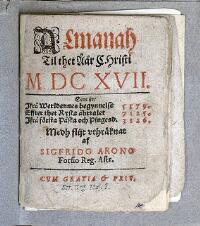 Almanah
Til thet Åår Christi
M DC XVII.
Som är
Ifrå Werldennes begynnelse 5579.
Effter thet Ryska åhrtalet 7125.
Ifrå första Påska och Pingesd. 3126.
Medh flijt vthräknat
af
SIGFRIDO ARONO
Forsio Reg. Astr.
CUM GRATIA & PRIV.